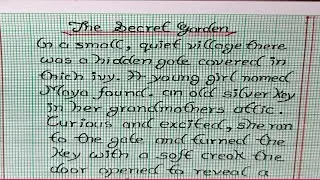 The Secret Garden
In a small, quiet village there
was a hidden gate covered in
thich ivy. A young girl named
Maya found. an old silver key
in her grandmothers attic.
Curious and excited, she ran
to the gate and turned the
key with a soft creak the
door opened to reveal a